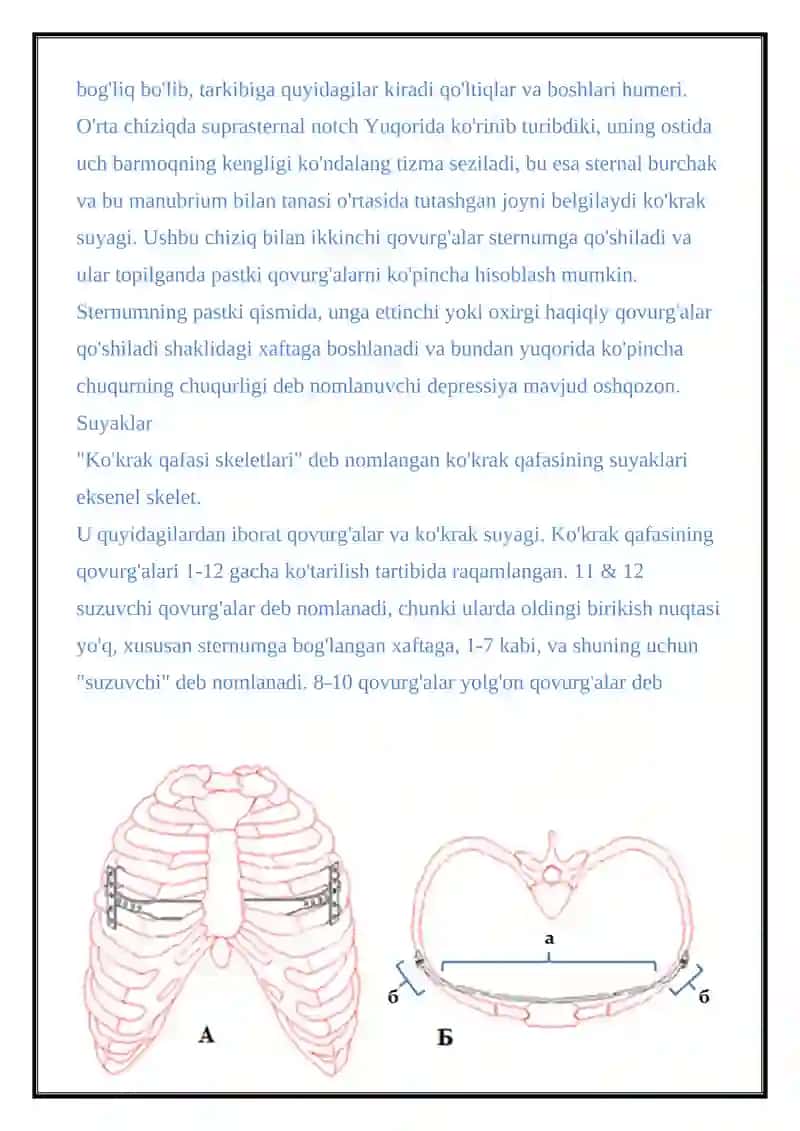 bog'liq bo'lib, tarkibiga quyidagilar kiradi qo'ltiqlar va boshlari humeri.
O'rta chiziqda suprasternal notch Yuqorida ko'rinib turibdiki, uning ostida
uch barmoqning kengligi ko'ndalang tizma seziladi, bu esa sternal burchak
va bu manubrium bilan tanasi o'rtasida tutashgan joyni belgilaydi ko'krak
suyagi. Ushbu chiziq bilan ikkinchi qovurg'alar sternumga qo'shiladi va
ular topilganda pastki qovurg'alarni ko'pincha hisoblash mumkin.
Sternumning pastki qismida, unga ettinchi yoki oxirgi haqiqiy qovurg'alar
qo'shiladi shaklidagi xaftaga boshlanadi va bundan yuqorida ko'pincha
chuqurning chuqurligi deb nomlanuvchi depressiya mavjud oshqozon.
Suyaklar
"Ko'krak qafasi skeletlari" deb nomlangan ko'krak qafasining suyaklari
eksenel skelet.
U quyidagilardan iborat qovurg'alar va ko'krak suyagi. Ko'krak qafasining
qovurg'alari 1-12 gacha ko'tarilish tartibida raqamlangan. 11 & 12
suzuvchi qovurg'alar deb nomlanadi, chunki ularda oldingi birikish nuqtasi
yo'q, xususan sternumga bog'langan xaftaga, 1-7 kabi, va shuning uchun
"suzuvchi" deb nomlanadi. 8-10 qovurg'alar yolg'on qovurg'alar deb
а
б
б
А
Б